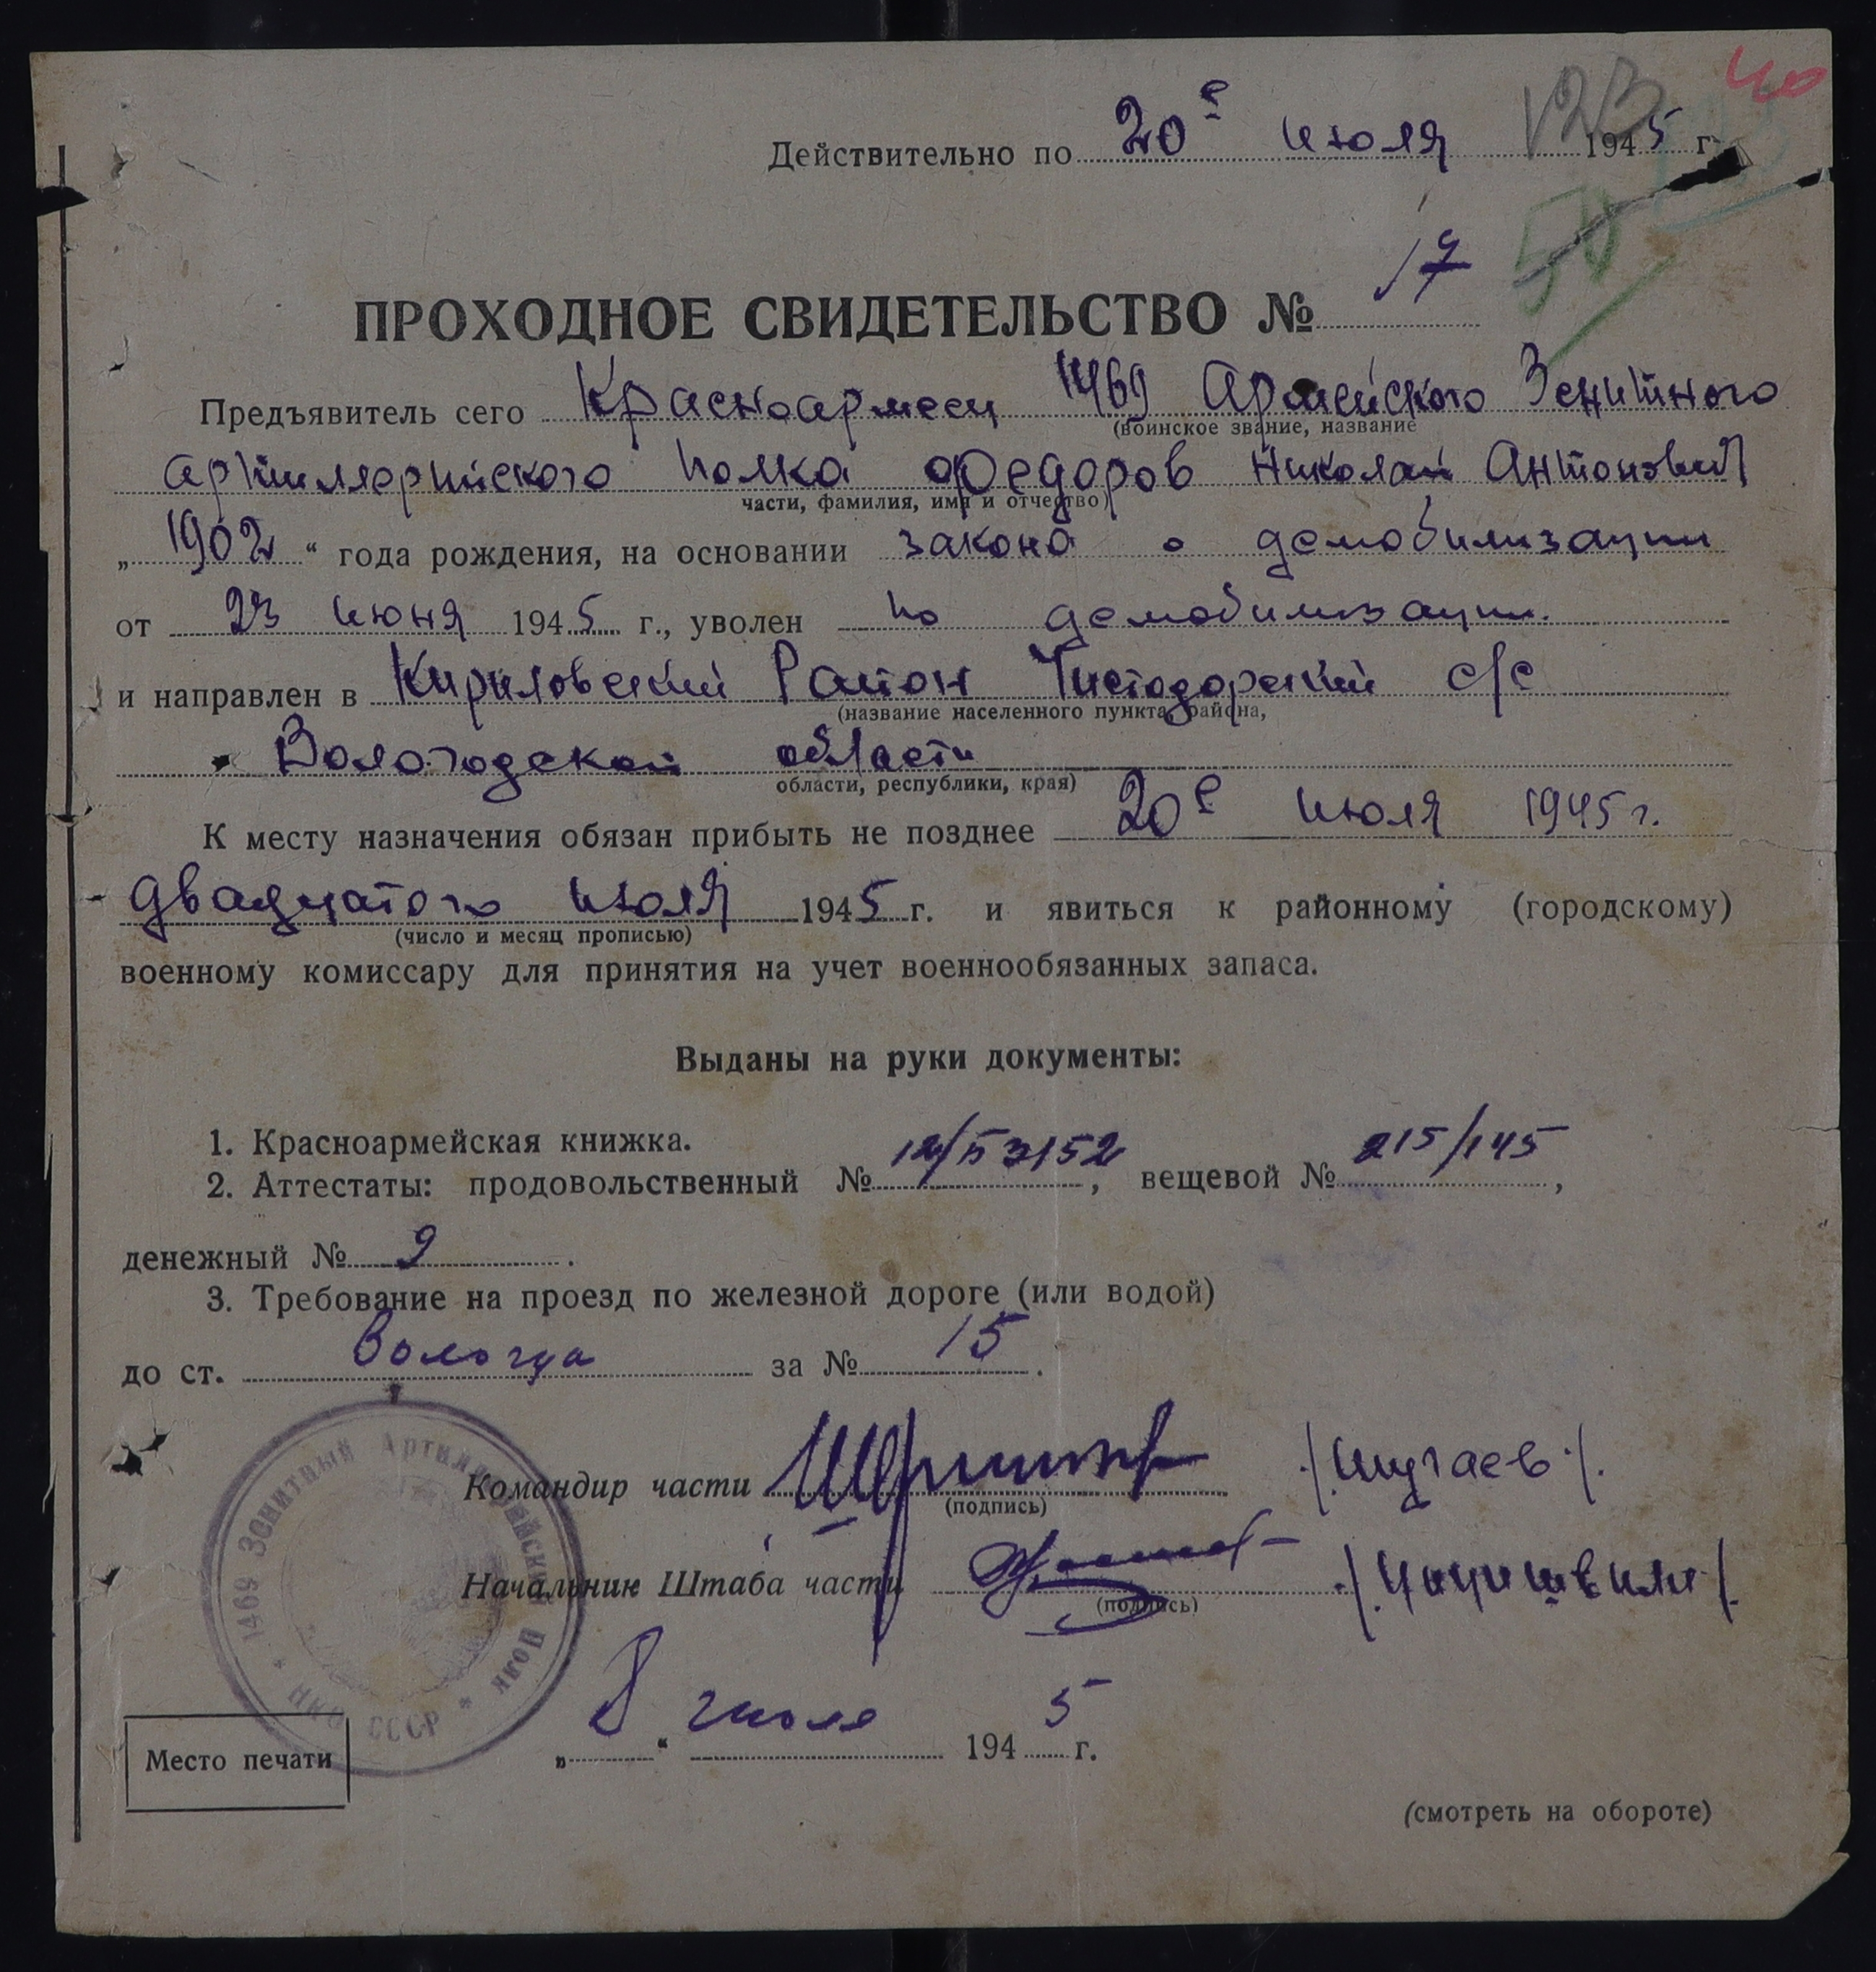 123 40
Действительно по 20е июля 1945 г.
50
ПРОХОДНОЕ СВИДЕТЕЛЬСТВО № 17
Предъявитель сего Красноармеец 1469 Армейского Зенитного
(воинское звание, название
артиллерийского полка Федоров Николай Антонович
части, фамилия, имя и отчество)
„1902“ года рождения, на основании закона о демобилизации
от 23 июня 1945 г., уволен по демобилизации.
и направлен в Кириловский Район Чистодорский с/с
(название населенного пункта, района,
Вологодской области
области, республики, края)
К месту назначения обязан прибыть не позднее 20е июля 1945 г.
двадцатого июля 1945 г. и явиться к районному (городскому)
(число и месяц прописью)
военному комиссару для принятия на учет военнообязанных запаса.
Выданы на руки документы:
1. Красноармейская книжка.
2. Аттестаты: продовольственный № , вещевой № 215/145,
денежный № 9.
3. Требование на проезд по железной дороге (или водой)
до ст. Вологда за № 15.
Командир части /Шугаев/.
(подпись)
Начальник Штаба части /Цицишвили/.
(подпись)
1469 Зенитный Артиллерийский Полк * НКО СССР *
„8“ июля 1945 г.
Место печати
(смотреть на обороте)